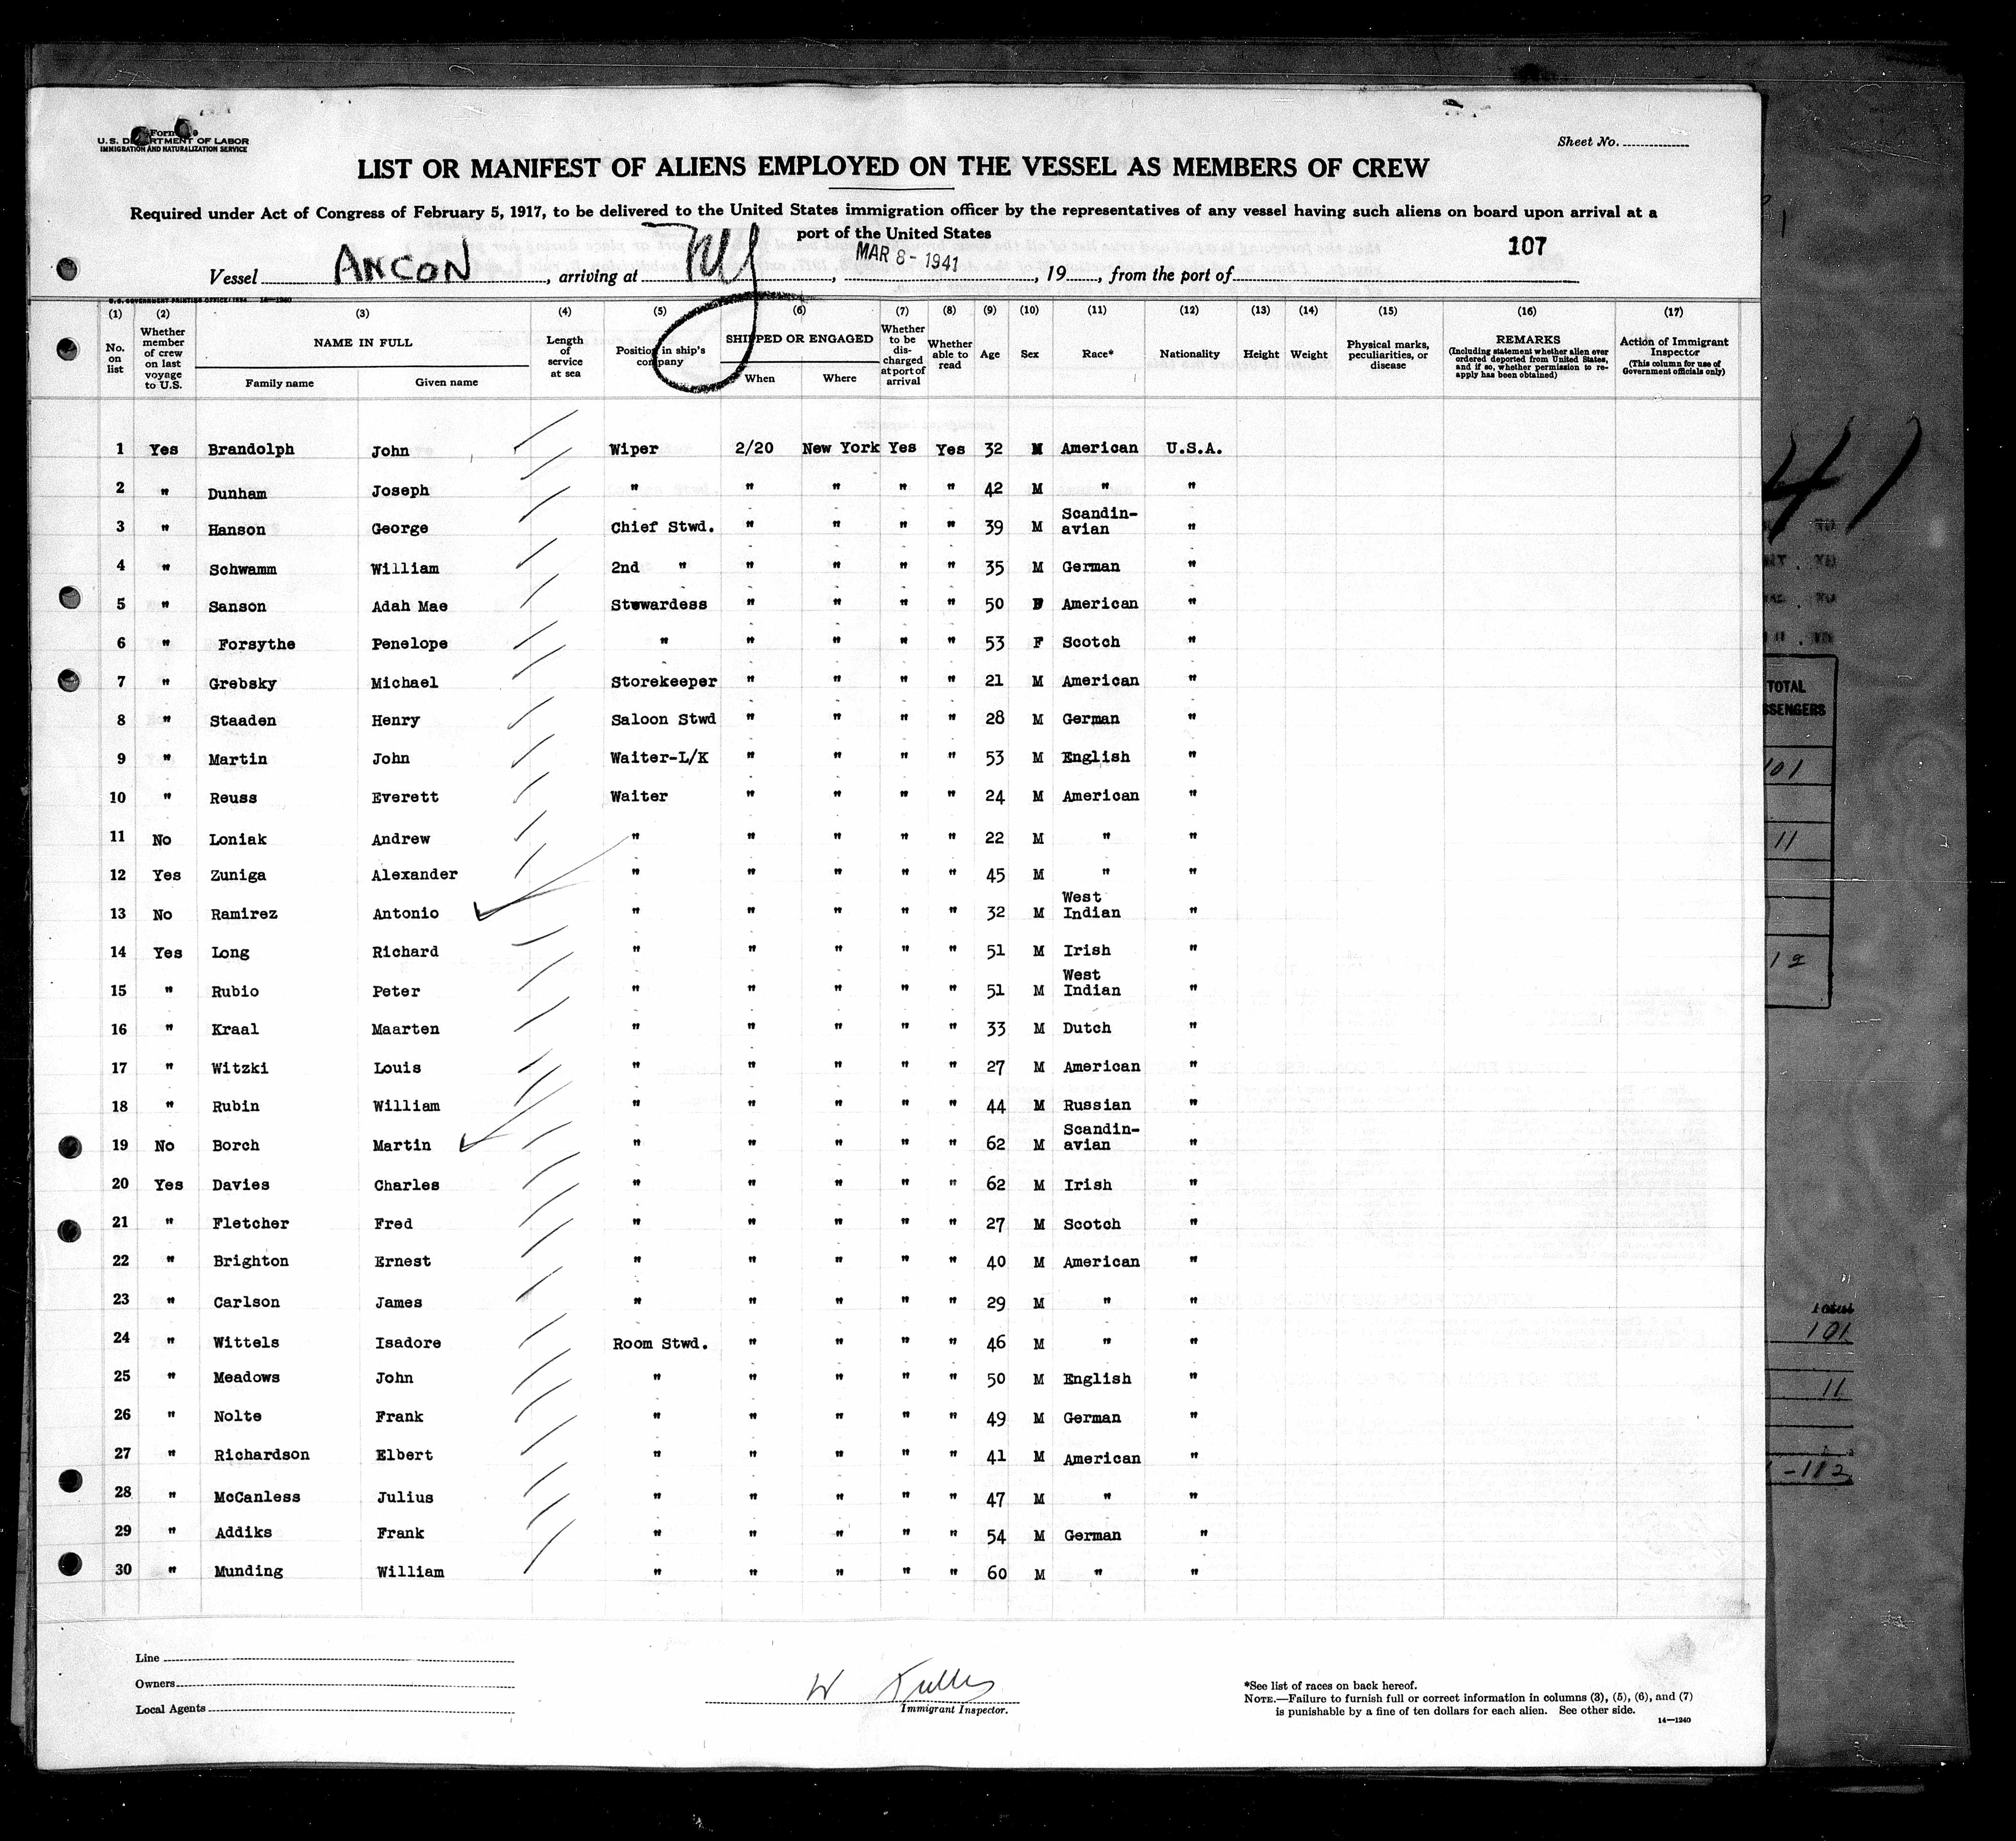 U.S. DEPARTMENT OF LABOR
IMMIGRATION AND NATURALIZATION SERVICE
Sheet No.
LIST OR MANIFEST OF ALIENS EMPLOYED ON THE VESSEL AS MEMBERS OF CREW
Required under Act of Congress of February 5, 1917, to be delivered to the United States immigration officer by the representatives of any vessel having such aliens on board upon arrival at a
port of the United States
107
Vessel ANCON, arriving at NY, MAR 8 - 1941, 19, from the port of
(1) (2) (3) (4) (5) (6) (7) (8) (9) (10) (11) (12) (13) (14) (15) (16) (17)
No. on list Whether member of crew on last voyage to U.S. NAME IN FULL Family name Given name Length of service at sea Position in ship's company SHIPPED OR ENGAGED When Where Whether to be discharged at port of arrival Whether able to read Age Sex Race* Nationality Height Weight Physical marks, peculiarities, or disease REMARKS (Including statement whether alien ever ordered deported from United States, and if so, whether permission to re-apply has been obtained) Action of Immigrant Inspector (This column for use of Government officials only)
1 Yes Brandolph John Wiper 2/20 New York Yes Yes 32 M American U.S.A.
2 " Dunham Joseph " " " " " 42 M " "
3 " Hanson George Chief Stwd. " " " " 39 M Scandin-avian "
4 " Schwamm William 2nd " " " " " 35 M German "
5 " Sanson Adah Mae Stewardess " " " " 50 F American "
6 " Forsythe Penelope " " " " " 53 F Scotch "
7 " Grebsky Michael Storekeeper " " " " 21 M American "
8 " Staaden Henry Saloon Stwd " " " " 28 M German "
9 " Martin John Waiter-L/K " " " " 53 M English "
10 " Reuss Everett Waiter " " " " 24 M American "
11 No Loniak Andrew " " " " " 22 M " "
12 Yes Zuniga Alexander " " " " " 45 M " "
13 No Ramirez Antonio " " " " " 32 M West Indian "
14 Yes Long Richard " " " " " 51 M Irish "
15 " Rubio Peter " " " " " 51 M West Indian "
16 " Kraal Maarten " " " " " 33 M Dutch "
17 " Witzki Louis " " " " " 27 M American "
18 " Rubin William " " " " " 44 M Russian "
19 No Borch Martin " " " " " 62 M Scandin-avian "
20 Yes Davies Charles " " " " " 62 M Irish "
21 " Fletcher Fred " " " " " 27 M Scotch "
22 " Brighton Ernest " " " " " 40 M American "
23 " Carlson James " " " " " 29 M " "
24 " Wittels Isadore Room Stwd. " " " " 46 M " "
25 " Meadows John " " " " " 50 M English "
26 " Nolte Frank " " " " " 49 M German "
27 " Richardson Elbert " " " " " 41 M American "
28 " McCanless Julius " " " " " 47 M " "
29 " Addiks Frank " " " " " 54 M German "
30 " Munding William " " " " " 60 M " "
Line
Owners
Local Agents
Immigrant Inspector.
*See list of races on back hereof.
NOTE.—Failure to furnish full or correct information in columns (3), (5), (6), and (7)
is punishable by a fine of ten dollars for each alien. See other side.
14—1240
TOTAL
101
11
101
11